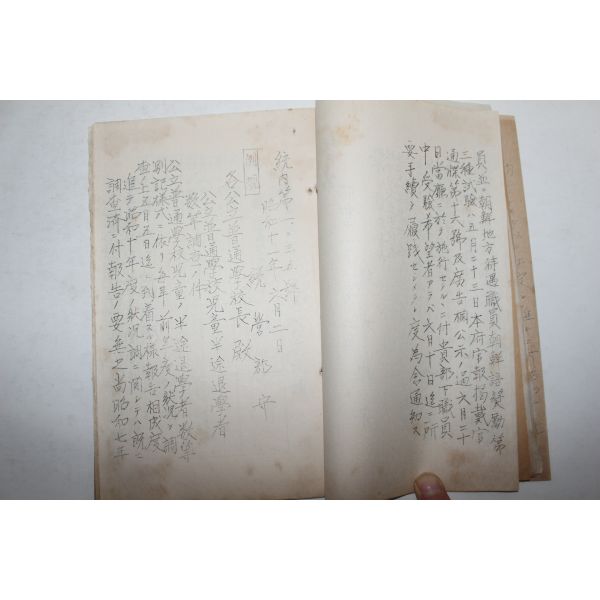 員並ニ朝鮮地方待遇職員朝鮮語奨勵第
三種試驗ハ五月二十三日本府官報揭載官
通牒第十六號及廣告欄公示ノ通六月二十
日當廳ニ於テ施行セラルルニ付貴部下職員
中受驗希望者アラバ六月十日迄ニ所
要手續ヲ履踐セシメラレ度為念通知ス
統內第一二三五號
昭和十一年六月二日
統營郡守
各公立普通學校長殿
公立普通學校兒童半途退學者
數等調査ノ件
公立普通學校兒童ノ半途退學者數等
別記樣式ニ依リ每年前年度ノ狀況ヲ調
查シ五月五日迄ニ到着スル樣報告相成度
進テ昭和十年度ノ狀況調ニ關シテハ既ニ
調查濟ニ付報告ノ要無之尚昭和七年